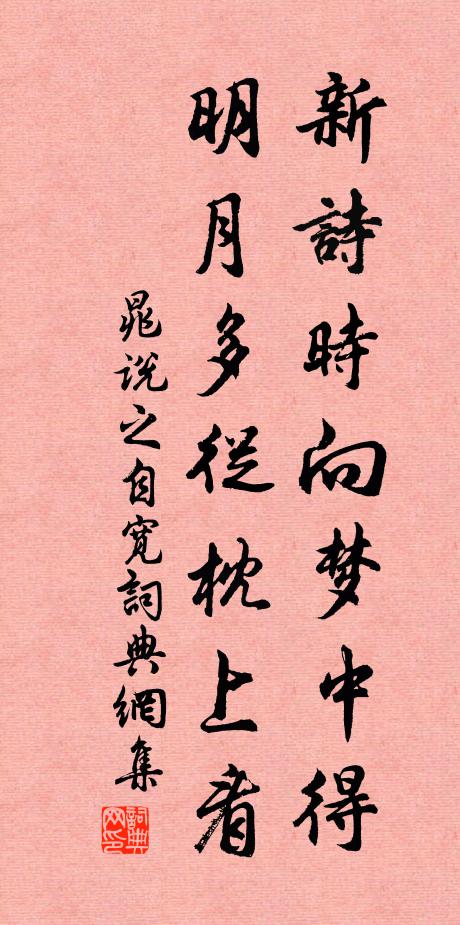 新詩時向梦中得
明月多從枕上看
晁说之自寬詞典網集
詞典
网印